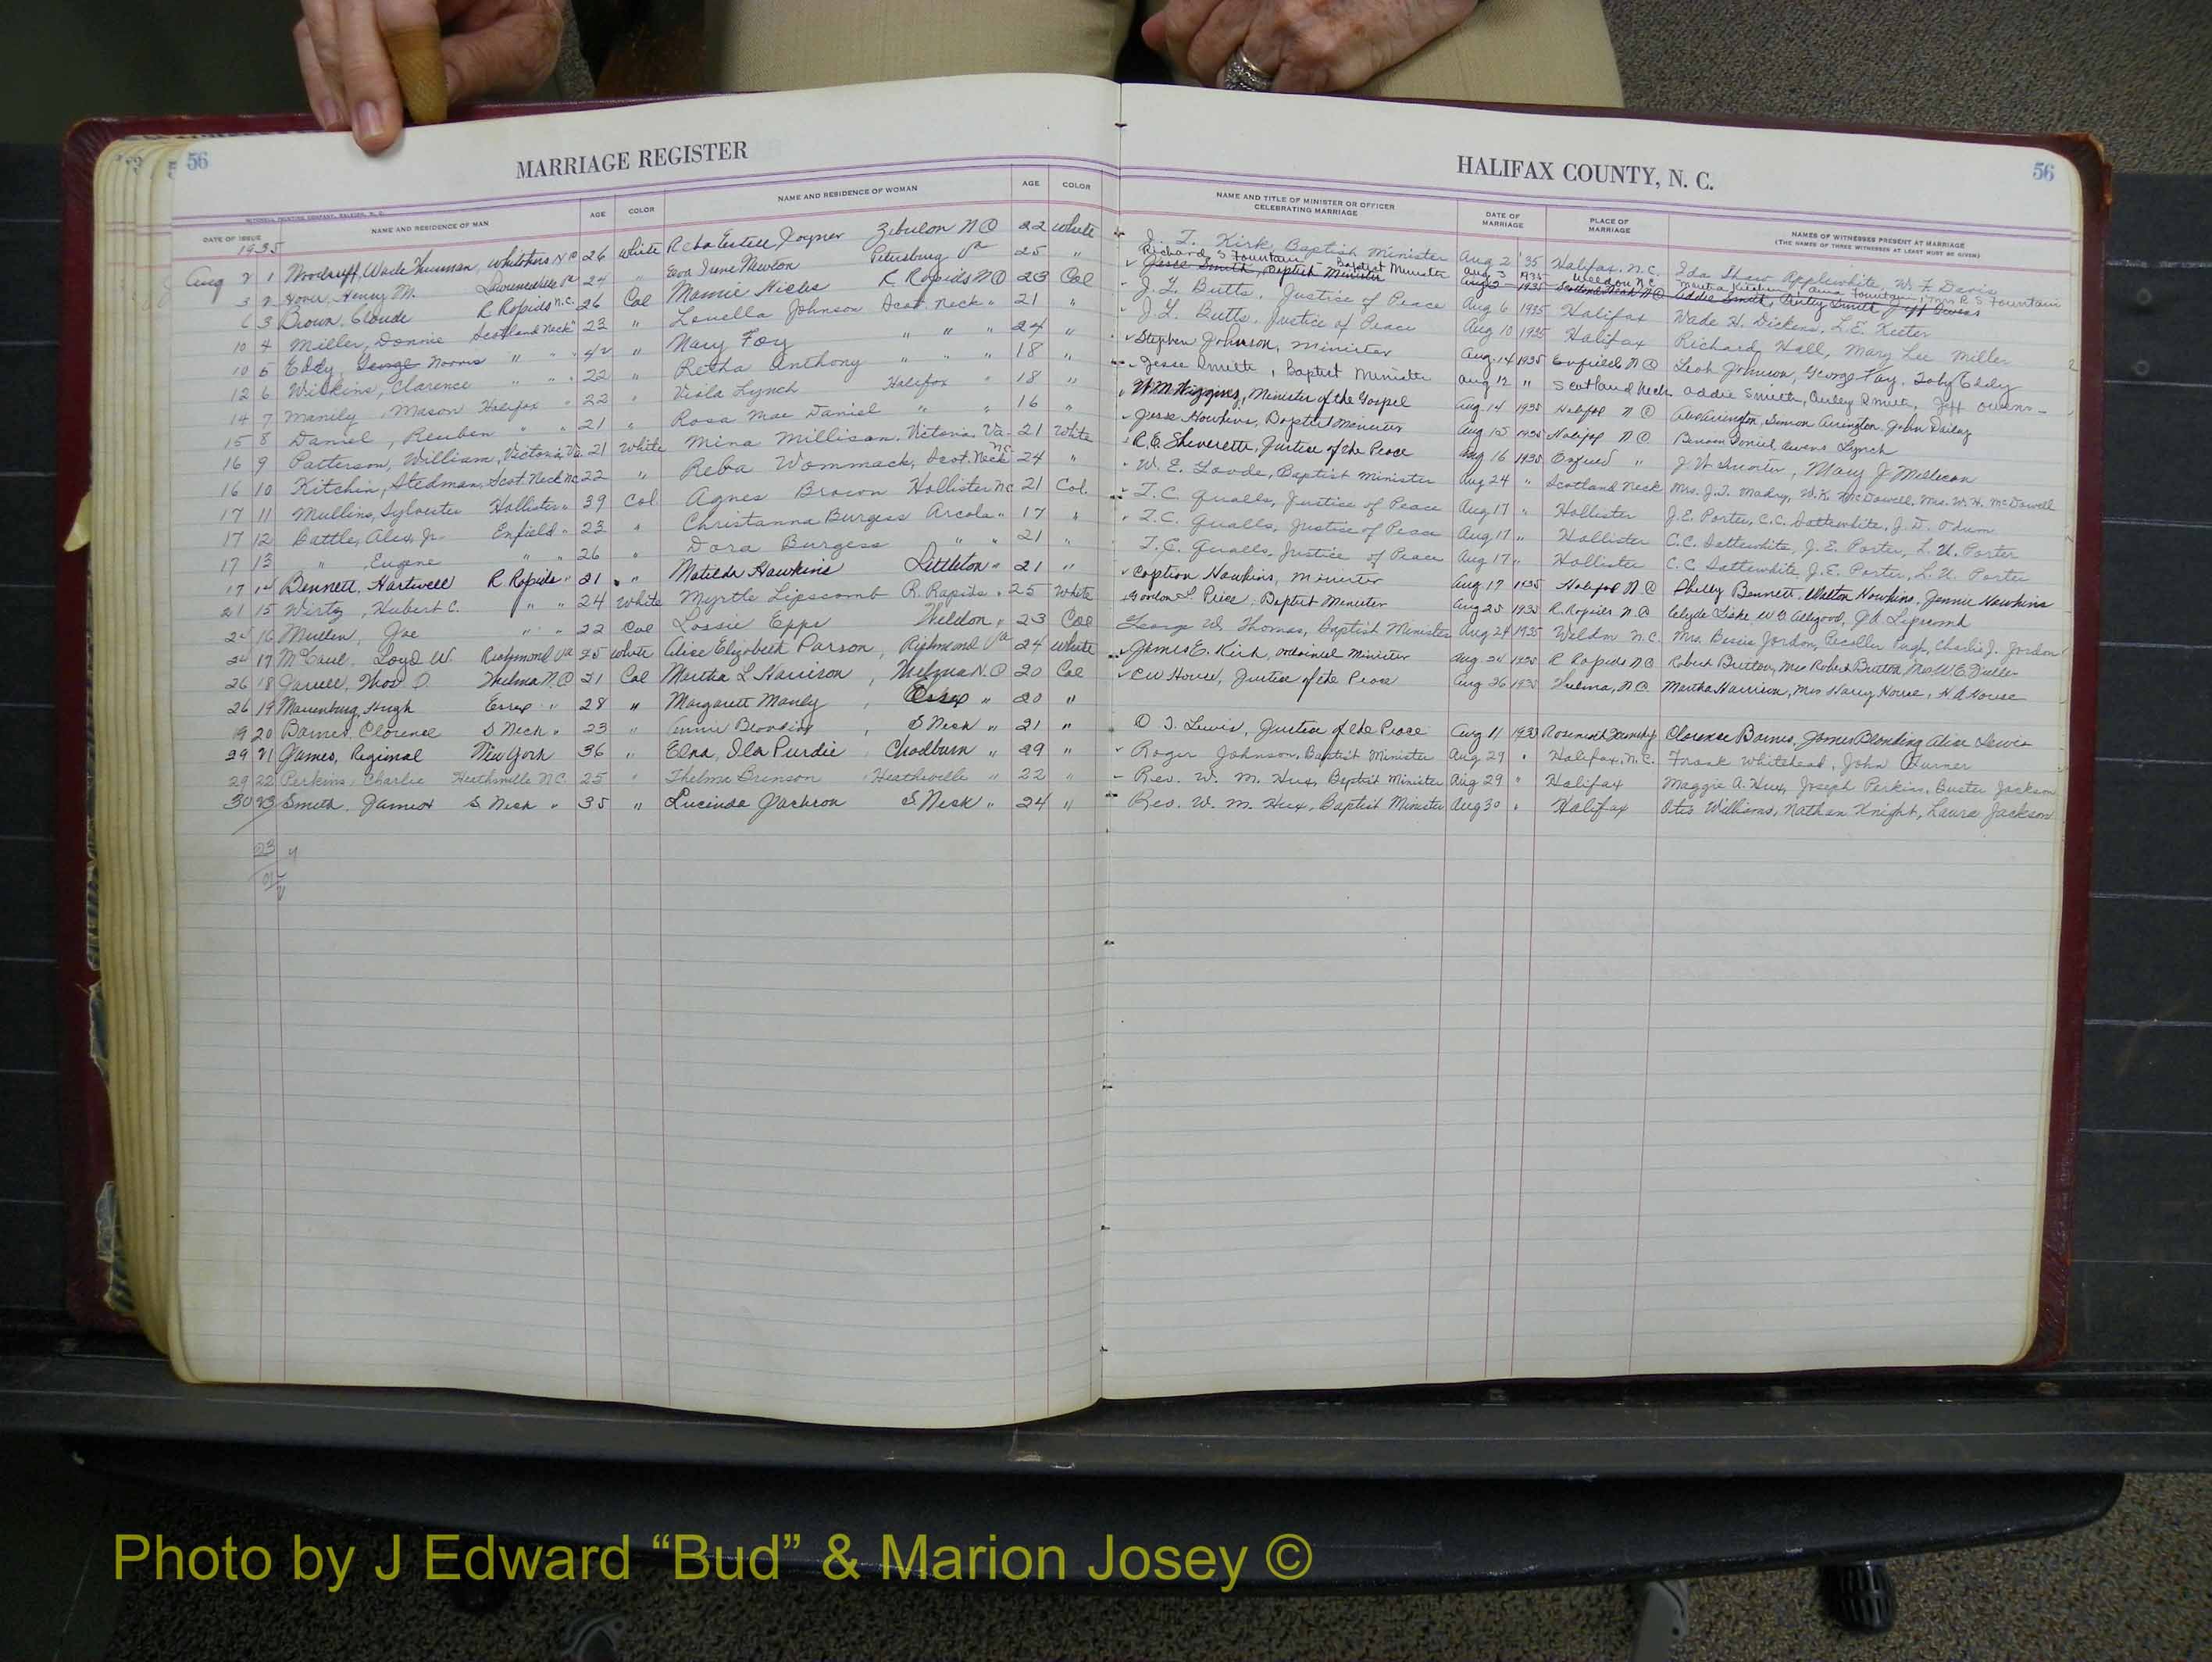 56 MARRIAGE REGISTER HALIFAX COUNTY, N. C. 56
MITCHELL PRINTING COMPANY, RALEIGH, N. C.
DATE OF ISSUE NAME AND RESIDENCE OF MAN AGE COLOR NAME AND RESIDENCE OF WOMAN AGE COLOR NAME AND TITLE OF MINISTER OR OFFICER CELEBRATING MARRIAGE DATE OF MARRIAGE PLACE OF MARRIAGE NAMES OF WITNESSES PRESENT AT MARRIAGE (THE NAMES OF THREE WITNESSES AT LEAST MUST BE GIVEN)
1935
Aug 2 1 Woodruff, Wade Thurman, Whitakers N C 26 White Reba Estell Joyner Zebulon N C 22 White J. T. Kirk, Baptist Minister Aug 2 '35 Halifax, N.C. Ida Shaw Applewhite, W. F. Davis
Richard S Fountain - Baptist Minister Aug 3 1935 Weldon, N.C. Fountain, Mrs R S Fountain
3 2 Henry M. Lawrenceville Va 24 " Eva Irene Newton Petersburg Va 25 " Jesse Smith, Baptist Minister 1935 Scotland Neck N C Addie Smith, Smith, Jeff Owens
6 3 Brown, Claude R Rapids N.C. 26 Col Mamie Hicks R Rapids N C 23 Col J. L. Butts, Justice of Peace Aug 6 1935 Halifax Wade H. Dickens, L. E. Keeter
10 4 Miller, Donnie Scotland Neck " 23 " Louella Johnson Scot. Neck " 21 " J. L. Butts, Justice of Peace Aug 10 1935 Halifax Richard Hall, Mary Lee Miller
10 5 Eddy, George " " " 42 " Mary Foy " " " 24 " Stephen Johnson, Minister Aug. 14 1935 Enfield N C Leah Johnson, George Foy, Toby Eddy
12 6 Wilkins, Clarence " " " 22 " Retha Anthony " " " 18 " Jesse Smith, Baptist Minister Aug 12 " Scotland Neck Addie Smith, Smith, Jeff Owens
14 7 Manily, Mason Halifax " 22 " Viola Lynch Halifax " 18 " W. M. Wiggins, Minister of the Gospel Aug. 14 1935 Halifax N C Arrington, Simon Arrington, John Dailey
15 8 Daniel, Reuben " " 21 " Rosa Mae Daniel " " 16 " Jesse Hawkins, Baptist Minister Aug 15 1935 Halifax N C Daniel, Owens Lynch
16 9 Patterson, William, Victoria, Va 21 White Mina Millison, Victoria, Va. 21 White R. E. Shervette, Justice of the Peace Aug 16 1935 Enfield " J. W. Hunter, Mary J. Millison
16 10 Kitchin, Stedman, Scot. Neck NC 22 " Reba Wommack, Scot. Neck N.C. 24 " W. E. Goode, Baptist Minister Aug 24 " Scotland Neck Mrs. J. T. Madry, W. K. McDowell, Mrs. W. H. McDowell
17 11 Mullins, Sylvester Hollister " 39 Col. Agnes Brown Hollister NC 21 Col. T. C. Qualls, Justice of Peace Aug 17 " Hollister J. E. Porter, C. C. Sattewhite, J. D. Odum
17 12 Battle, Alex, Jr. Enfield " 23 " Christanna Burgess Arcola " 17 " T. C. Qualls, Justice of Peace Aug 17 " Hollister C. C. Sattewhite, J. E. Porter, L. U. Porter
17 13 " , Eugene " " 26 " Dora Burgess " " 21 " T. C. Qualls, Justice of Peace Aug 17 " Hollister C. C. Sattewhite, J. E. Porter, L. U. Porter
17 14 Bennett, Hartwell R Rapids " 21 " Matilda Hawkins Littleton " 21 " Caption Hawkins, Minister Aug 17 1935 Halifax N C Shelly Bennett, Walton Hawkins, Jennie Hawkins
21 15 Wirtz, Hubert C. " " 24 White Myrtle Lipscomb R. Rapids " 25 White Gordon L. Price, Baptist Minister Aug 25 1935 R. Rapids N. C Clyde Liske, W O Allgood, J A Lipscomb
24 16 Mullen, Joe " " 22 Col Lossie Epps Weldon " 23 Col George W. Thomas, Baptist Minister Aug 24 1935 Weldon N.C. Mrs. Bessie Jordon, Pugh, Charlie J. Jordon
24 17 McCaul, Loyd W. Richmond Va 25 White Alice Elizabeth Parson, Richmond Va 24 White James E. Kirk, ordained Minister Aug 24 1935 R Rapids N C Robert Britton, Mrs Robert Britton, Mrs W E Fuller
26 18 Jarrell, Thos D. Thelma N. C 21 Col Martha L Harrison, Thelma N. C 20 Col C W House, Justice of the Peace Aug 26 1935 Thelma, N. C. Martha Harrison, Mrs Harry House, H A House
26 19 Hugh Essex " 28 " Margarett Manly, Essex " 20 "
19 20 Barnes, Clarence S. Neck " 23 " Annie Blonding S Neck " 21 " O. J. Lewis, Justice of the Peace Aug 11 1935 Clarence Barnes, James Blonding Alice Lewis
29 21 James, Reginal New York 36 " Elna, Ila Purdie, Chadburn " 29 " Roger Johnson, Baptist Minister Aug 29 " Halifax, N.C. Frank Whitehead, John Turner
29 22 Perkins, Charlie Heathsville N.C. 25 " Thelma Brinson, Heathsville " 22 " Rev. W. M. Hux, Baptist Minister Aug 29 " Halifax Maggie A. Hux, Joseph Perkins, Buster Jackson
30 23 Smith, James S. Neck " 35 " Lucinda Jackson S Neck " 24 " Rev. W. M. Hux, Baptist Minister Aug 30 " Halifax Otis Williams, Nathan Knight, Laura Jackson
23
Photo by J Edward “Bud” & Marion Josey ©